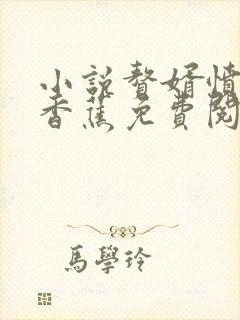 小説贅婿憤
香蕉免費閱
馬學玲